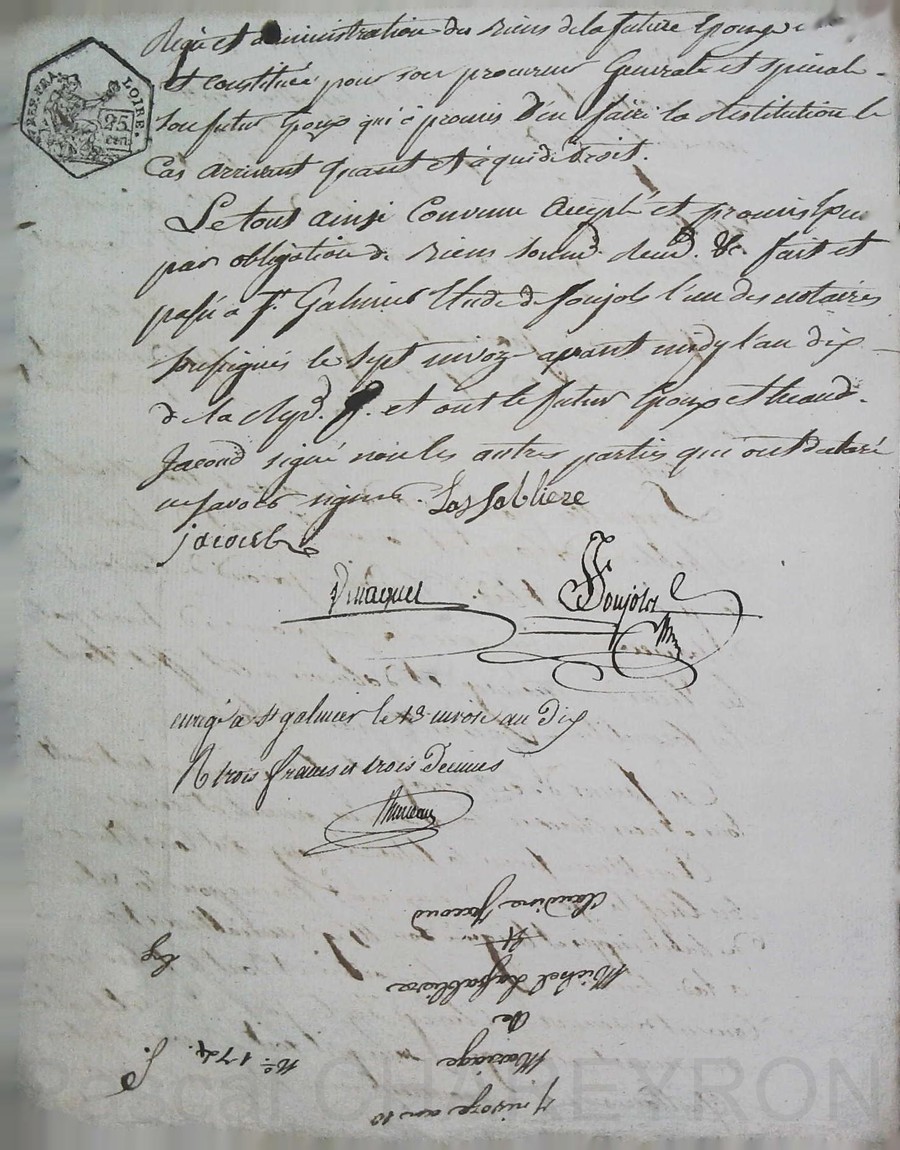 Regie et administration des Biens de la future Epouze
et constitué pour son procureur General et spécial
son futur Epoux qui a promis d'en faire la restitution le
Cas arrivant quant et à qui de Droit.
Le tout ainsi Convenu accepté et promis
par obligation de Biens soumd. &c. fait et
passé a St. Galmier Etude de Soujols l'un des notaires
soussignés le sept nivoz avant midy l'an dix
de la Repd. f. et ont le futur Epoux et
Jacoud signé non les autres parties qui ont declaré
ne savoir signer. Lassabliere
jacoud
Soujols
enregé a st galmier le 13 nivose an Dix
R trois francs et trois Decimes
Claudine Jacoud
et
Michel Lassabliere
de
Mariage
No. 174.
7 nivoze an 10
REP. FRA.
LOIRE.
25
cen.
CHAREYRON